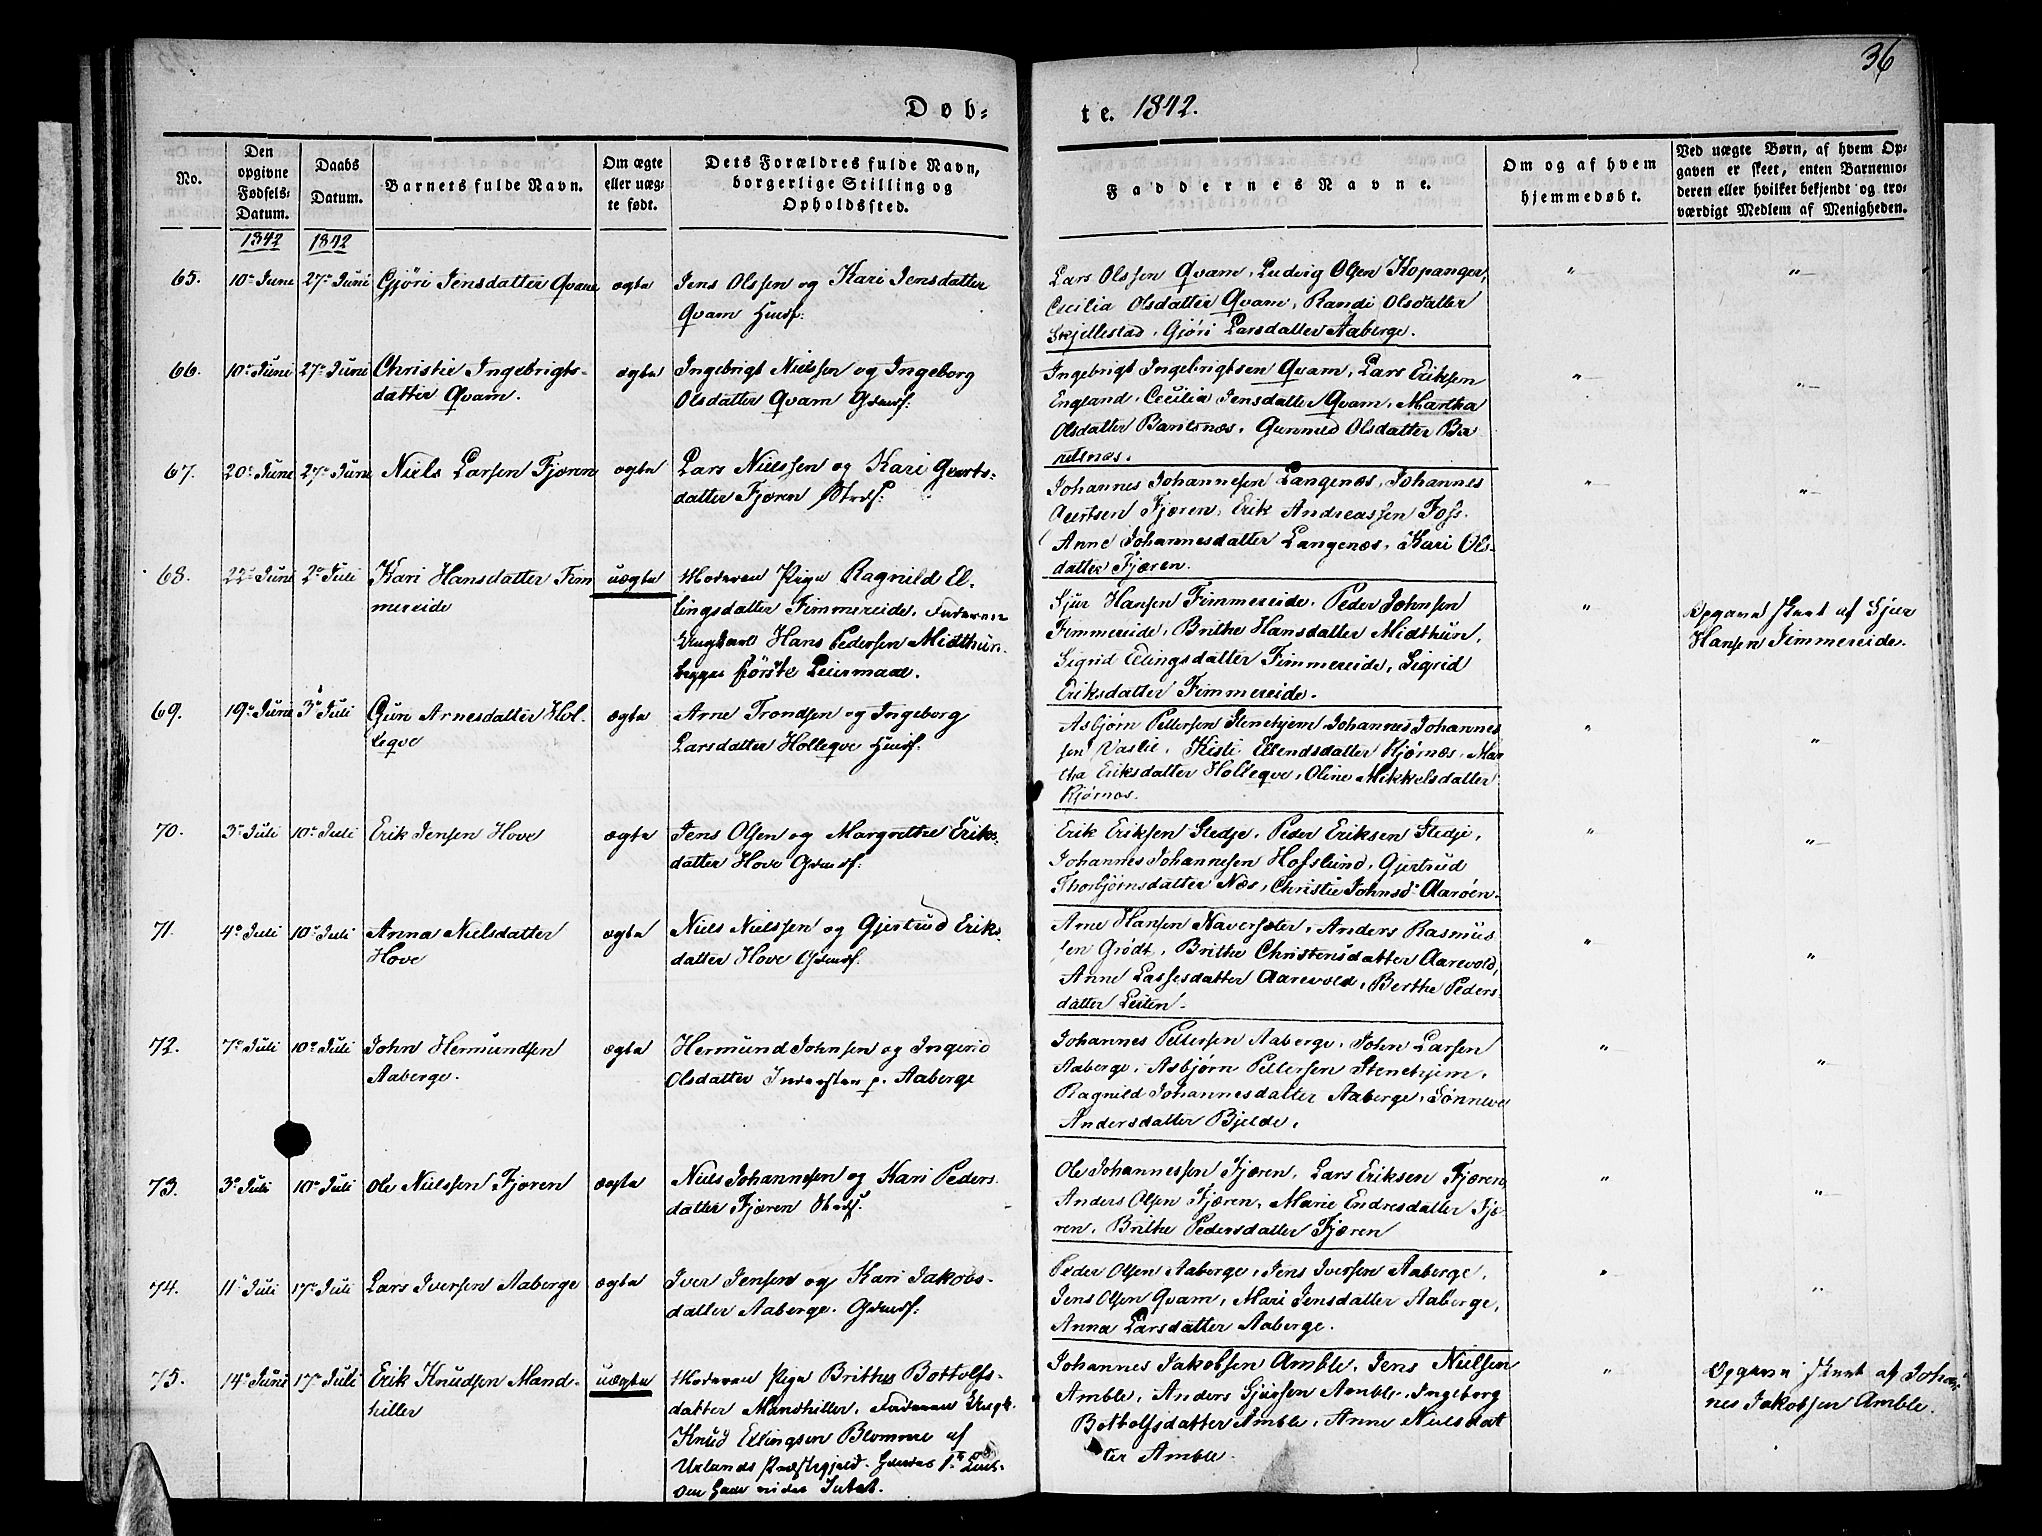 36
Døb-
te. 1842.
No.
Den opgivne Fødsels-Datum.
Daabs Datum.
Barnets fulde Navn.
Om ægte eller uæg-te født.
Dets Forældres fulde Navn, borgerlige Stilling og Opholdssted.
Faddernes Navne.
Om og af hvem hjemmedøbt.
Ved uægte Børn, af hvem Op-gaven er skeet, enten Barnemo-deren eller hvilket bekjendt og tro-værdigt Medlem af Menigheden.
1842 1842
65. 10de Juni 27de Juni Gjøri Jensdatter Qvam ægte Jens Olssen og Kari Jensdatter
Qvam Huusf:
Lars Olssen Qvam, Ludvig Olsen Kopanger,
Cecilia Olsdatter Qvam, Randi Olsdatter
Skjellestad, Gjöri Larsdatter Aaberge.
66. 10de Juni 27de Juni Christie Ingebrigts-
datter Qvam.
ægte Ingebrigt Nielssen og Ingeborg
Olsdatter Qvam Gdmdf:
Ingebrigt Ingebrigtsen Qvam, Lars Eriksen
England, Cecilia Jensdatter Qvam, Martha
Olsdatter Barsnæs, Gunnild Olsdatter Ba
rsnæs.
67. 20de Juni 27de Juni Niels Larsen Fjæren ægte Lars Nielssen og Kari Gvarts-
datter Fjæren Strsf:
Johannes Johannesen Langenæs, Johannes
Fjæren, Erik Andreassen Foss.
Anne Johannesdatter Langenæs, Kari Ols-
datter Fjæren.
68. 22de Juni 2de Juli Kari Hansdatter Fim
mereide
uægte Moderen Pige Ragnild El-
lingsdatter Fimmereide, Faderen
Ungkarl Hans Pedersen Midthun.
begges förste Leiermaal.
Sjur Hansen Fimmereide, Peder Johnsen
Fimmereide, Brithe Hansdatter Midthun,
Sigrid Ellingsdatter Fimmereide, Sigrid
Eriksdatter Fimmereide.
Opgave skeet af Sjur
Hansen Fimmereide.
69. 19de Juni 3de Juli Guri Arnesdatter Hol-
leqve
ægte Arne Trondsen og Ingeborg
Larsdatter Holleqve Huusf:
Asbjørn Pettersen Stenehjem, Johannes Johannes
sen Vaslie, Kisti Ellendsdatter Kjørnæs, Mar
tha Eriksdatter Holleqve, Oline Mikkelsdatter
Kjørnæs.
70. 3de Juli 10de Juli Erik Jensen Hove ægte Jens Olsen og Margrethe Eriks-
datter Hove Gdmdf:
Erik Eriksen Stedje, Peder Eriksen Stedje,
Johannes Johannesen Hofslund, Gjertrud
Thorbjørnsdatter Næs, Christie Johnsd: Aaröen.
71. 4de Juli 10de Juli Anna Nielsdatter
Hove
ægte Niels Nielssen og Gjertrud Eriks-
datter Hove Gdmdf:
Arne Hansen Navarsæter, Anders Rasmus
sen Grödt, Brithe Christensdatter Aarevold,
Anne Lassesdatter Aarevold, Berthe Peders-
datter Leiten.
72. 7de Juli 10de Juli John Hermundsen
Aaberge.
ægte Hermund Johnsen og Ingerid
Olsdatter Inderster p. Aaberge
Johannes Pettersen Aaberge, John Larsen
Aaberge, Asbjørn Pettersen Stenehjem,
Ragnild Johannesdatter Aaberge, Sönneve
Andersdatter Bjelde.
73. 3de Juli 10de Juli Ole Nielssen Fjæren ægte Niels Johannesen og Kari Peders
datter Fjæren Strsf:
Ole Johannessen Fjæren, Lars Eriksen Fjæren,
Anders Olsen Fjæren, Marie Endresdatter Fjæ-
ren, Brithe Pedersdatter Fjæren
74. 11de Juli 17de Juli Lars Iversen Aaberge ægte Iver Jensen og Kari Jakobs-
datter Aaberge. Gdmdf:
Peder Olsen Aaberge, Jens Iversen Aaberge,
Jens Olsen Qvam, Mari Jensdatter Aaberge,
Anna Larsdatter Aaberge.
75. 14de Juni 17de Juli Erik Knudsen Mand-
hiller
uægte Moderen Pige Brithe Bottolfs-
datter Mandhiller, Faderen Ungk.
Knud Ellingsen Blomme af
Urlands Præstegjeld.
Johannes Jakobsen Amble, Jens Nielsen
Amble, Anders Sjursen Amble, Ingeborg
Bottolfsdatter Amble, Anne Nielsdat
ter Amble.
Opgave skeet af Johan
nes Jakobsen Amble.